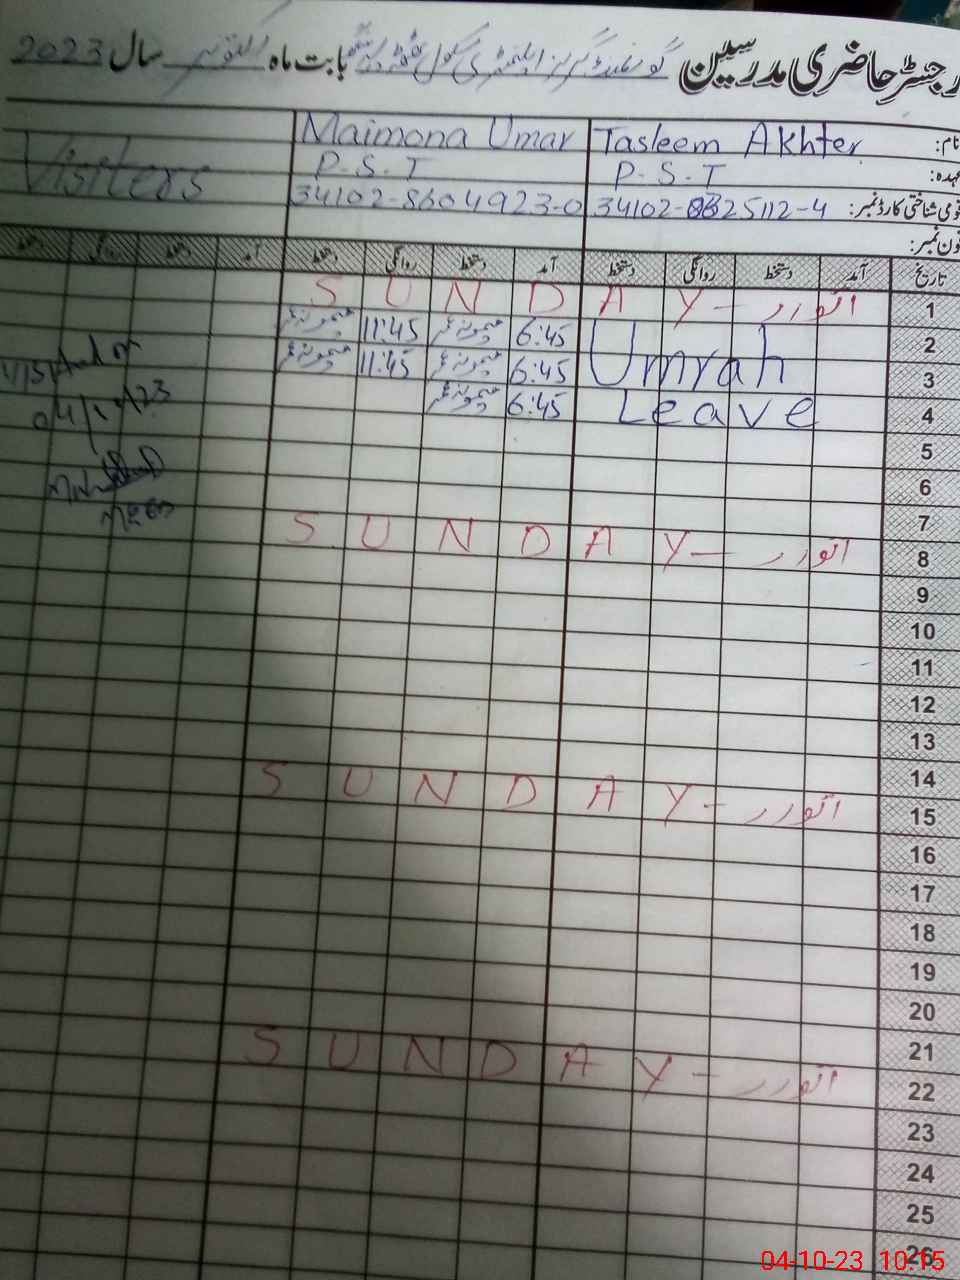 رجسٹر حاضری مدرسین گورنمنٹ گرلز ایلیمنٹری سکول بابت ماہ اکتوبر سال 2023
نام: Tasleem Akhter Maimona Umar
عہدہ: P.S.T P.S.T Visiters
قومی شناختی کارڈ نمبر: 34102-8604923-0
فون نمبر:
تاریخ آمد دستخط روانگی دستخط آمد دستخط روانگی دستخط آمد دستخط روانگی دستخط
1 SUNDAY - اتوار
2 Umrah 6:45 میمونہ عمر 11:45 میمونہ عمر
3 6:45 میمونہ عمر 11:45 میمونہ عمر
4 Leave 6:45 میمونہ عمر
5
6
7
8 SUNDAY - اتوار
9
10
11
12
13
14
15 SUNDAY - اتوار
16
17
18
19
20
21
22 SUNDAY - اتوار
23
24
25
26
04-10-23 10:15